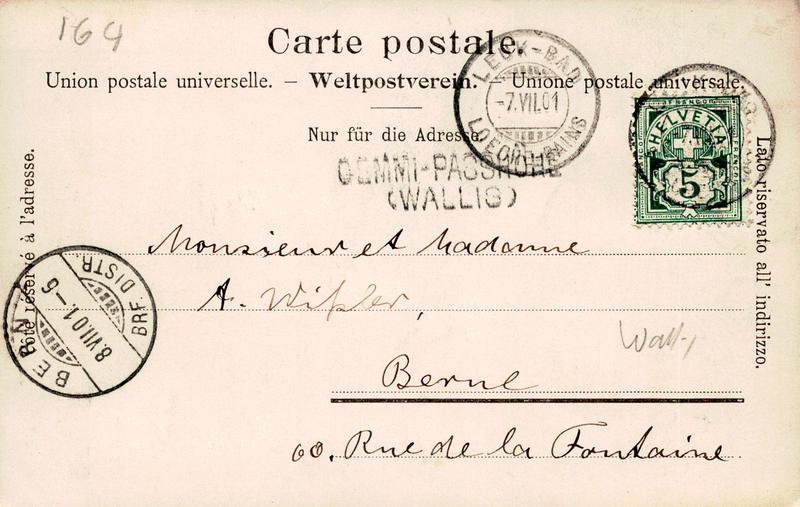 164
Carte postale.
Union postale universelle. – Weltpostverein. – Unione postale universale.
Nur für die Adresse.
LEUK-BAD
-7.VII.01
LOECHE-BAINS
GEMMI-PASSHÖHE
(WALLIS)
FRANCO
HELVETIA
5
Côté réservé à l'adresse.
Lato riservato all' indirizzo.
Monsieur et Madame
A. Wißler,
Berne
60. Rue de la Fontaine.
BERN
8.VII.01.-6
BRF. DISTR.